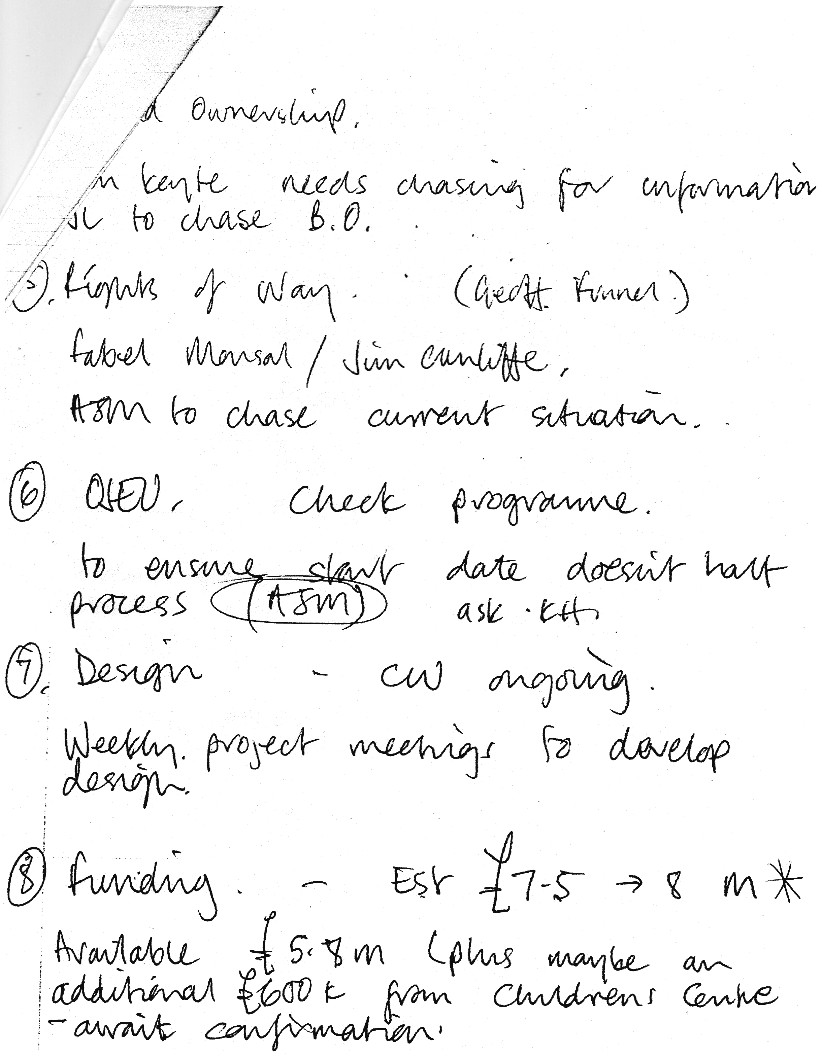 d Ownership.
n Keyte needs chasing for information
to chase B.O.
5. Rights of Way. (Geoff Funnel.)
Monsal / Jim Cunliffe,
ASM to chase current situation.
6 Check programme.
to ensure start date doesn't halt
process (ASM) ask KH.
7. Design - CW ongoing.
Weekly project meetings to develop
design.
8 Funding. - Est £7.5 → 8 m *
Available £5.8m (plus maybe an
additional £600k from Childrens Centre
- await confirmation.